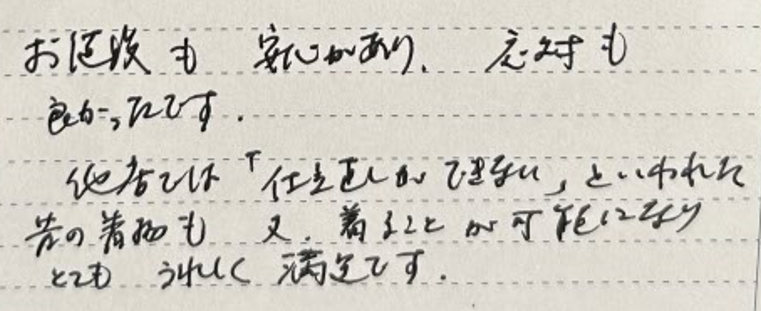 お値段も 安心があり、応対も
良かったです.
他店では「仕立直しができない」といわれた
昔の着物も 又、着ることが可能になり
とても うれしく 満足です.